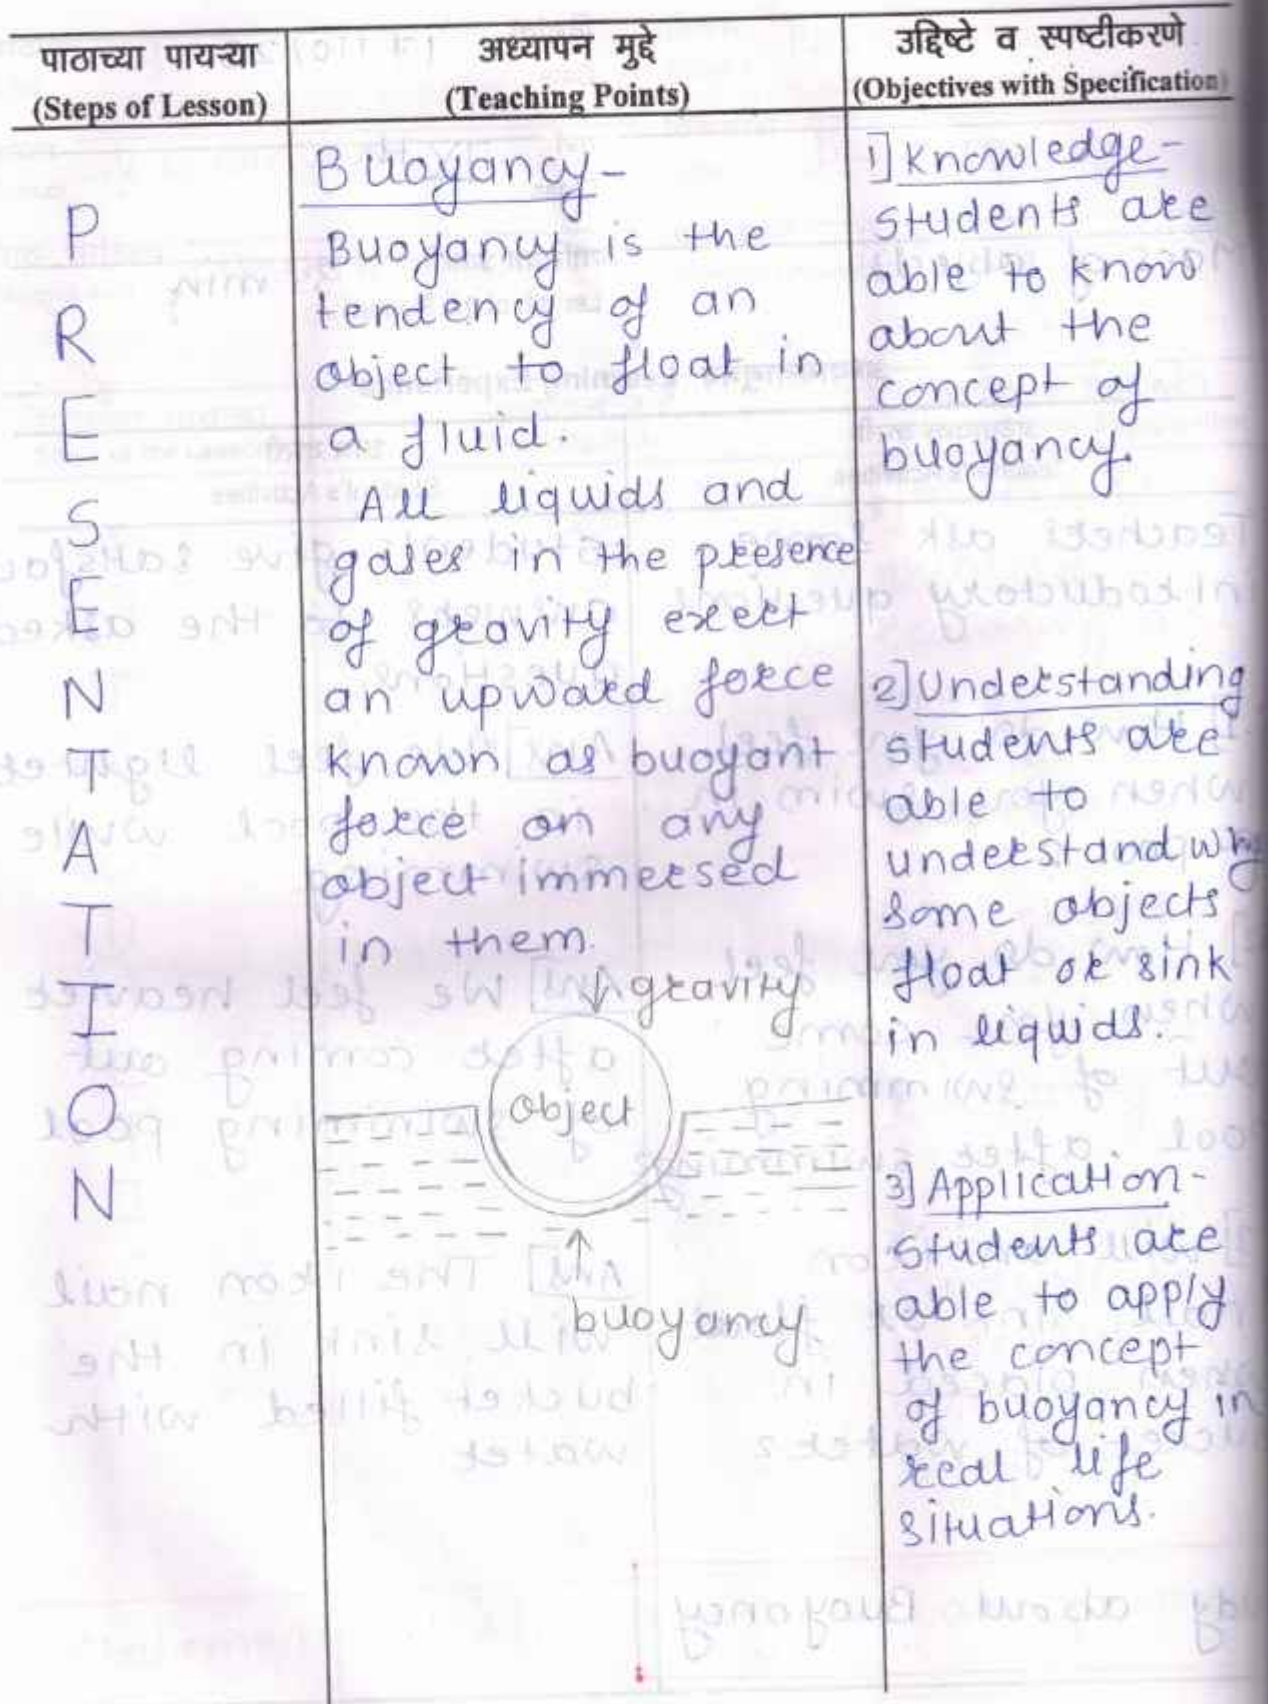 पाठाच्या पायऱ्या
(Steps of Lesson)
अध्यापन मुद्दे
(Teaching Points)
उद्दिष्टे व स्पष्टीकरणे
(Objectives with Specification)
P
R
E
S
E
N
T
A
T
I
O
N
Buoyancy-
Buoyancy is the
tendency of an
object to float in
a fluid.
All liquids and
gases in the presence
of gravity exert
an upward force
known as buoyant
force on any
object immersed
in them.
gravity
object
buoyancy
1] Knowledge-
students are
able to know
about the
concept of
buoyancy.
2] Understanding
students are
able to
understand why
some objects
float or sink
in liquids.
3] Application-
students are
able to apply
the concept
of buoyancy in
real life
situations.